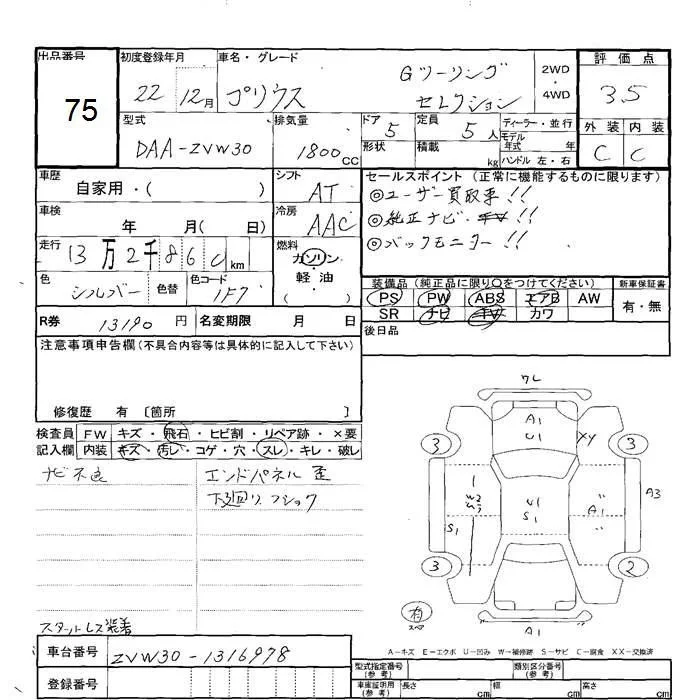 出品番号 75
初度登録年月 22 12月
車名・グレード プリウス Gツーリング セレクション
2WD ・ 4WD
評価点 3.5
外装 内装
C C
型式 DAA-ZVW30
排気量 1800CC
ドア 5
形状
定員 5人
積載 kg
ディーラー・並行
モデル年式 年
ハンドル 左・右
車歴 自家用・( )
シフト AT
セールスポイント (正常に機能するものに限ります)
◎ユーザー買取車!!
◎純正ナビ・!!
◎バックモニター!!
車検 年 月( 日)
冷房 AAC
走行 13万2千860km
燃料 ガソリン・軽油 ( )
色 シルバー 色替
色コード 1F7
装備品 (純正品に限り○をつけてください) 新車保証書
PS PW ABS エアB AW 有・無
SR ナビ カワ
R券 13190円
名変期限 月 日
後日品
注意事項申告欄(不具合内容等は具体的に記入して下さい)
修復歴 有 〔箇所 〕
検査員 FW キズ・飛石・ヒビ割・リペア跡・×要
記入欄 内装 キズ・汚レ・コゲ・穴・スレ・キレ・破レ
ナビ不良 エンドパネル歪
下廻りフショク
ワレ
A1
U1 XY
3 3
U1
S1
A1
A3
S1
3 2
有
スペア
A1
スタットレス装着
A-キズ E-エクボ U-凹み W-補修跡 S-サビ C-腐食 XX-交換済
車台番号 ZVW30-1316978
登録番号
型式指定番号(参考) 類別区分番号(参考)
車庫証明用(参考) 長さ cm 幅 cm 高さ cm